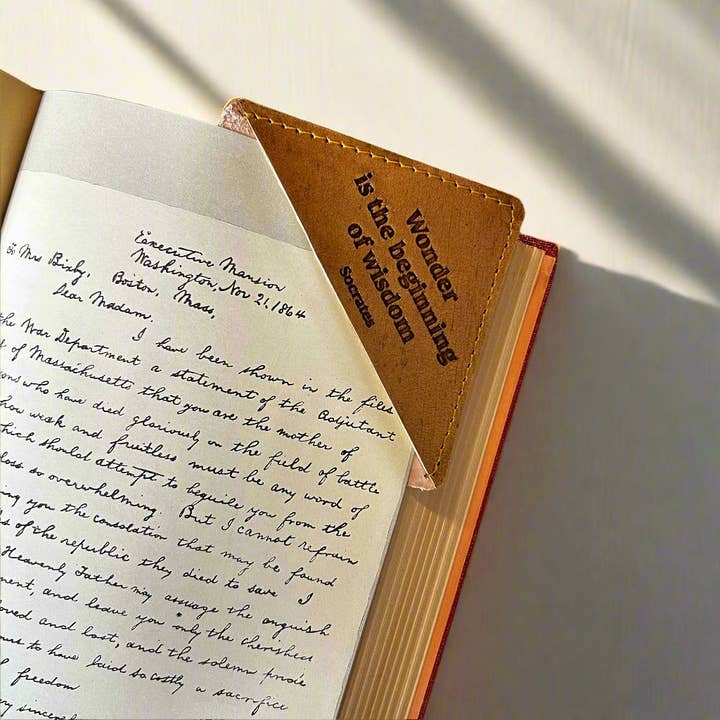 Wonder
is the beginning
of wisdom
Socrates
Executive Mansion
Washington, Nov 21, 1864
To Mrs Bixby,
Boston, Mass,
Dear Madam,
I have been shown in the files
the War Department a statement of the Adjutant
of Massachusetts that you are the mother of
ons who have died gloriously on the field of battle
how weak and fruitless must be any word of
hich should attempt to beguile you from the
loss so overwhelming. But I cannot refrain
ing you the consolation that may be found
s of the republic they died to save I
Heavenly Father may assuage the anguish
ment, and leave you only the cherished
oved and lost, and the solemn pride
urs to have laid so costly a sacrifice
freedom
ry sincerely